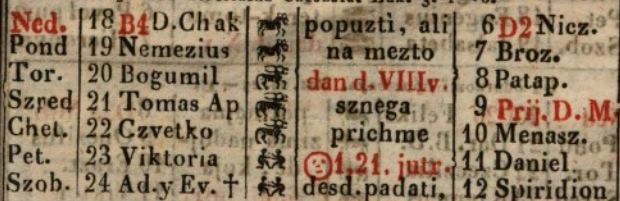 Ned. 18 B4 D. Chak popuztì, ali 6 D2 Nicz.
Pond 19 Nemezius na mezto 7 Broz.
Tor. 20 Bogumil dan d. VIIIv. 8 Patap.
Szred 21 Tomas Ap sznega 9 Prij. D. M.
Chet. 22 Czvetko prichme 10 Menasz.
Pet. 23 Viktoria 1, 21. jutr. 11 Daniel
Szob. 24 Ad. y Ev. † desd. padati, 12 Spiridion